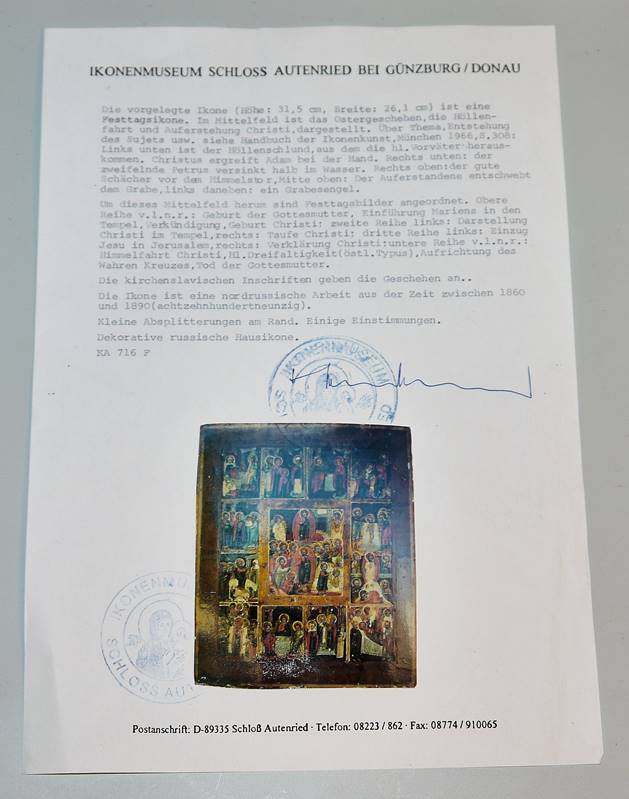 IKONENMUSEUM SCHLOSS AUTENRIED BEI GÜNZBURG/DONAU
Die vorgelegte Ikone (Höhe: 31,5 cm, Breite: 26,1 cm) ist eine
Festtagsikone. Im Mittelfeld ist das Ostergeschehen,die Höllen-
fahrt und Auferstehung Christi,dargestellt. Über Thema,Entstehung
des Sujets usw. siehe Handbuch der Ikonenkunst,München 1966,S.308:
Links unten ist der Höllenschlund,aus dem die hl.Vorväter heraus-
kommen. Christus ergreift Adam bei der Hand. Rechts unten: der
zweifelnde Petrus versinkt halb im Wasser. Rechts oben:der gute
Schächer vor dem Himmelstor,Mitte oben: Der Auferstandene entschwebt
dem Grabe,links daneben: ein Grabesengel.
Um dieses Mittelfeld herum sind Festtagsbilder angeordnet. Obere
Reihe v.l.n.r.: Geburt der Gottesmutter, Einführung Mariens in den
Tempel,Verkündigung,Geburt Christi: zweite Reihe links: Darstellung
Christi im Tempel,rechts: Taufe Christi: dritte Reihe links: Einzug
Jesu in Jerusalem,rechts: Verklärung Christi:untere Reihe v.l.n.r.:
Himmelfahrt Christi,Hl.Dreifaltigkeit(östl.Typus),Aufrichtung des
Wahren Kreuzes,Tod der Gottesmutter.
Die kirchenslavischen Inschriften geben die Geschehen an..
Die Ikone ist eine nordrussische Arbeit aus der Zeit zwischen 1860
und 1890(achtzehnhundertneunzig).
Kleine Absplitterungen am Rand. Einige Einstimmungen.
Dekorative russische Hausikone.
KA 716 F
IKONENMUSEUM
IKONENMU
SCHLOSS AUT
Postanschrift: D-89335 Schloß Autenried · Telefon: 08223/862 · Fax: 08774/910065